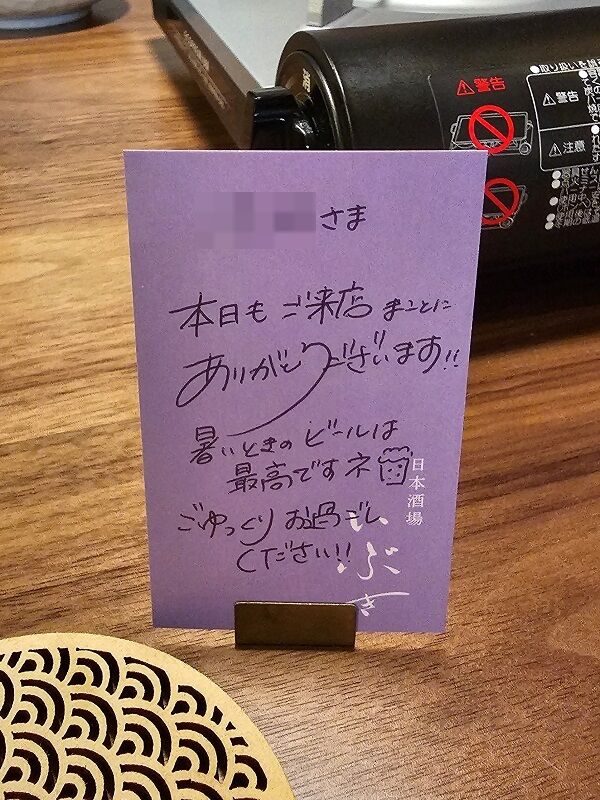 さま
本日もご来店まことに
ありがとうございます!!
暑いときのビールは
最高ですネ
ごゆっくりお過ごし
ください!!
日本酒場
いぶき
●取り扱いを誤
⚠警告
⚠警告
⚠注意